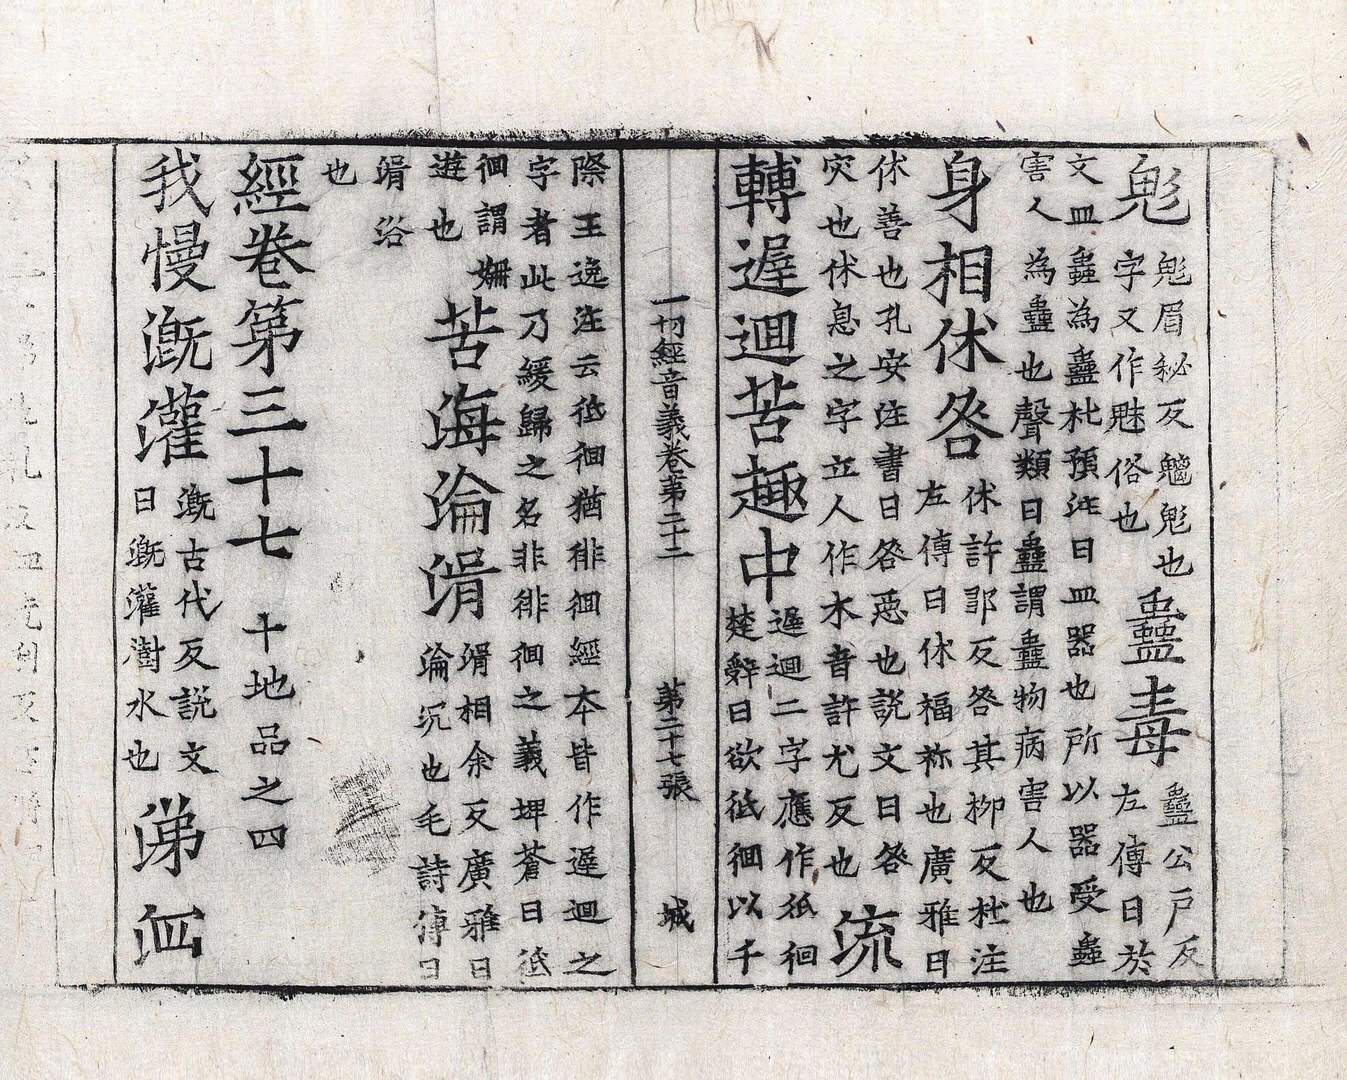 鬽鬽眉秘反魑鬽也字又作魅俗也蠱毒蠱公戸反左傳曰於
文皿蟲為蠱杜預注曰皿器也所以器受蟲
害人為蠱也聲類曰蠱謂蠱物病害人也
身相休咎休許郢反咎其柳反杜注左傳曰休福祢也廣雅曰
休善也孔安注書曰咎惡也説文曰咎
災也休息之字立人作木音許尤反也流
轉遟迴苦趣中遟迴二字應作彽徊楚辤曰欲彽徊以千
一切經音義卷第二十二 第二十七張 城
際王逸注云彽徊猶徘徊經本皆作遟迴之
字者此乃緩歸之名非徘徊之義埤蒼曰彽
徊謂姍遊也苦海淪湑湑相余反廣雅曰淪沉也毛詩傳曰
湑浴
也
經卷第三十七 十地品之四
我慢溉灌溉古代反説文曰溉灌澍水也涕泗